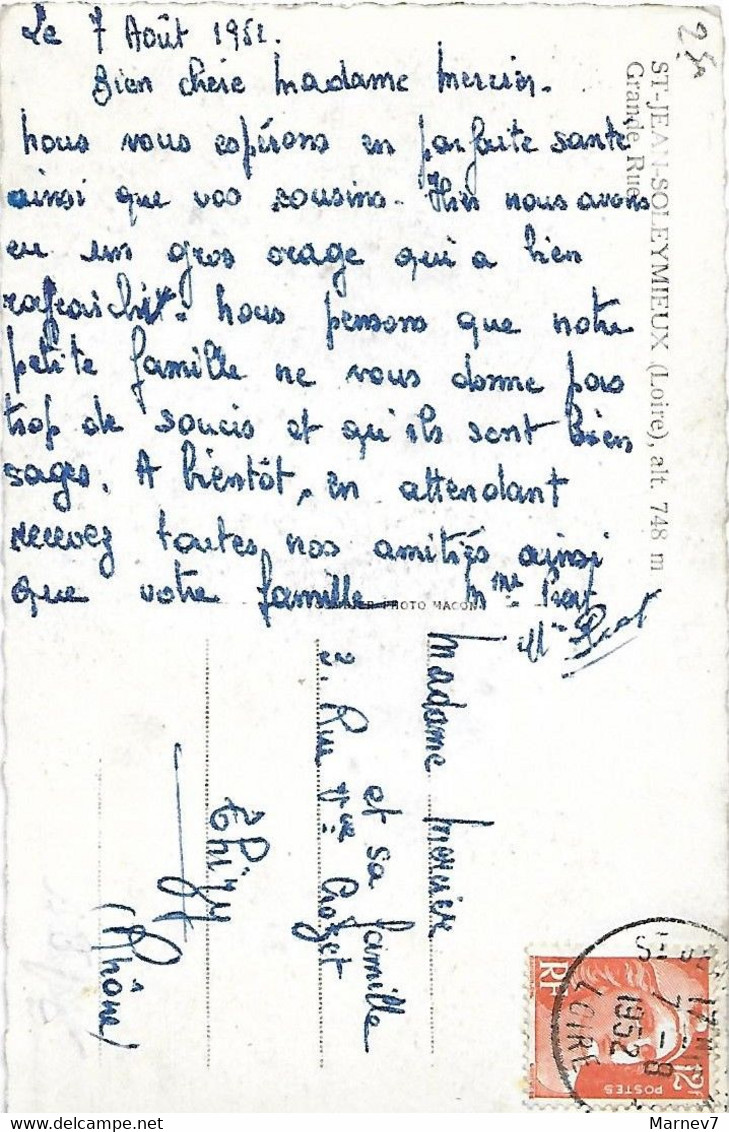 Le 7 Août 1952.
Bien chère Madame Mercier.
Nous vous espérons en parfaite santé
ainsi que vos cousins. Hier nous avons
eu un gros orage qui a bien
rafraichit. Nous pensons que notre
petite famille ne vous donne pas
trop de soucis et qu'ils sont bien
sages. A bientôt, en attendant
recevez toutes nos amitiés ainsi
que votre famille Mme
ST-JEAN-SOLEYMIEUX (Loire), alt. 748 m
Grande Rue
PHOTO MACON
Madame Mercier
et sa famille
2. Rue Crozet
Thizy
(Rhône)
RF
12F
POSTES
17H
7-8
1952
LOIRE
Marnev7